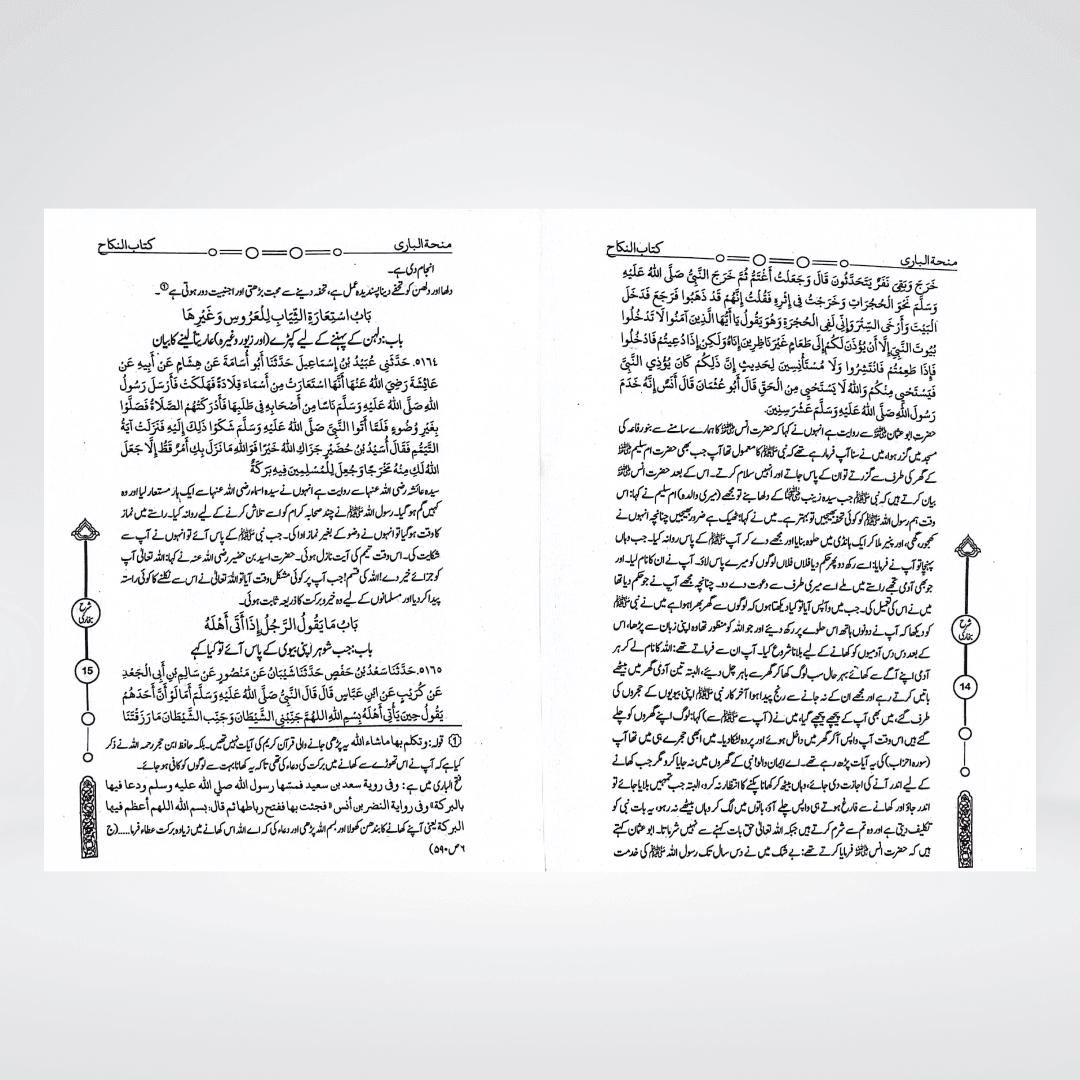 منحة الباری
کتاب النکاح
خَرَجَ وَبَقِیَ نَفَرٌ یَتَحَدَّثُونَ قَالَ وَجَعَلْتُ أَغْتَمُّ ثُمَّ خَرَجَ النَّبِیُّ صَلَّی اللّٰهُ عَلَیْهِ
وَسَلَّمَ نَحْوَ الْحُجُرَاتِ وَخَرَجْتُ فِی إِثْرِهِ فَقُلْتُ إِنَّهُمْ قَدْ ذَهَبُوا فَرَجَعَ فَدَخَلَ
الْبَیْتَ وَأَرْخَی السِّتْرَ وَإِنِّی لَفِی الْحُجْرَةِ وَهُوَ یَقُولُ یَا أَیُّهَا الَّذِینَ آمَنُوا لَا تَدْخُلُوا
بُیُوتَ النَّبِیِّ إِلَّا أَنْ یُؤْذَنَ لَکُمْ إِلَی طَعَامٍ غَیْرَ نَاظِرِینَ إِنَاهُ وَلَکِنْ إِذَا دُعِیتُمْ فَادْخُلُوا
فَإِذَا طَعِمْتُمْ فَانْتَشِرُوا وَلَا مُسْتَأْنِسِینَ لِحَدِیثٍ إِنَّ ذَلِکُمْ کَانَ یُؤْذِی النَّبِیَّ
فَیَسْتَحْیِی مِنْکُمْ وَاللّٰهُ لَا یَسْتَحْیِی مِنَ الْحَقِّ قَالَ أَبُو عُثْمَانَ قَالَ أَنَسٌ إِنَّهُ خَدَمَ
رَسُولَ اللّٰهِ صَلَّی اللّٰهُ عَلَیْهِ وَسَلَّمَ عَشْرَ سِنِینَ.
حضرت ابو عثمانؓ سے روایت ہے انہوں نے کہا کہ حضرت انسؓ کا ہمارے سامنے سے بنو رفاعہ کی
مسجد میں گزر ہوا، میں نے سنا آپ فرما رہے تھے کہ نبی ﷺ کا معمول تھا آپ جب بھی حضرت ام سلیمؓ
کے گھر کی طرف سے گزرتے تو ان کے پاس جاتے اور انہیں سلام کرتے۔ اس کے بعد حضرت انسؓ
بیان کرتے ہیں کہ نبی ﷺ جب سیدہ زینبؓ کے دلھا بنے تو مجھے (میری والدہ) ام سلیم نے کہا: اس
وقت ہم رسول اللہ ﷺ کو کوئی تحفہ بھیجیں تو بہتر ہے۔ میں نے کہا: ٹھیک ہے ضرور بھیجیں چنانچہ انہوں نے
کھجور، گھی، اور پنیر ملا کر ایک ہانڈی میں حلوہ بنایا اور مجھے دے کر آپ ﷺ کے پاس روانہ کیا۔ جب وہاں
پہنچا تو آپ نے فرمایا: اسے رکھ دو پھر حکم دیا فلاں فلاں لوگوں کو میرے پاس لاؤ۔ آپ نے ان کا نام لیا۔ اور
جو بھی آدمی تجھے راستے میں ملے اسے میری طرف سے دعوت دے دو۔ چنانچہ مجھے آپ نے جو حکم دیا تھا
میں نے اس کی تعمیل کی۔ جب میں واپس آیا تو کیا دیکھتا ہوں کہ لوگوں سے گھر بھرا ہوا ہے میں نے نبی ﷺ
کو دیکھا کہ آپ نے دونوں ہاتھ اس حلوے پر رکھ دیئے اور جو اللہ کو منظور تھا وہ اپنی زبان سے پڑھا، اس
کے بعد دس دس آدمیوں کو کھانے کے لیے بلانا شروع کیا۔ آپ ان سے فرماتے تھے: اللہ کا نام لے کر ہر
آدمی اپنے آگے سے کھائے بہر حال سب لوگ کھا کر گھر سے باہر چل دیے، البتہ تین آدمی گھر میں بیٹھے
باتیں کرتے رہے اور مجھے ان کے نہ جانے سے رنج پیدا ہوا آخر کار نبی ﷺ اپنی بیویوں کے حجروں کی
طرف گئے، میں بھی آپ کے پیچھے پیچھے گیا، میں نے (آپ سے ﷺ سے) کہا: لوگ اپنے گھروں کو چلے
گئے ہیں اس وقت آپ واپس آ کر گھر میں داخل ہوئے اور پردہ لٹکا دیا۔ میں ابھی حجرے ہی میں تھا آپ
(سورہ احزاب) کی یہ آیات پڑھ رہے تھے۔ اے ایمان والو! نبی کے گھروں میں نہ جایا کرو مگر جب کھانے
کے لیے اندر آنے کی اجازت دی جائے، وہاں بیٹھ کر کھانا پکنے کا انتظار نہ کرو، البتہ جب تمہیں بلایا جائے تو
اندر جاؤ اور کھانے سے فارغ ہوتے ہی واپس چلے آؤ باتوں میں لگ کر وہاں بیٹھے نہ رہو، یہ بات نبی کو
تکلیف دیتی ہے اور وہ تم سے شرم کرتے ہیں جبکہ اللہ تعالیٰ حق بات کہنے سے نہیں شرماتا۔ ابو عثمان کہتے
ہیں کہ حضرت انسؓ فرمایا کرتے تھے: بے شک میں نے دس سال تک رسول اللہ ﷺ کی خدمت
شرح بخاری
14
منحة الباری
کتاب النکاح
انجام دی ہے۔
دلھا اور دلھن کو تحفے دینا پسندیدہ عمل ہے، تحفہ دینے سے محبت بڑھتی اور اجنبیت دور ہوتی ہے ①۔
بَابُ اسْتِعَارَةِ الثِّیَابِ لِلْعَرُوسِ وَغَیْرِهَا
باب: دلہن کے پہننے کے لیے کپڑے (اور زیور وغیرہ) عاریتاً لینے کا بیان
٥١٦٤. حَدَّثَنِی عُبَیْدُ بْنُ إِسْمَاعِیلَ حَدَّثَنَا أَبُو أُسَامَةَ عَنْ هِشَامٍ عَنْ أَبِیهِ عَنْ
عَائِشَةَ رَضِیَ اللّٰهُ عَنْهَا أَنَّهَا اسْتَعَارَتْ مِنْ أَسْمَاءَ قِلَادَةً فَهَلَکَتْ فَأَرْسَلَ رَسُولُ
اللّٰهِ صَلَّی اللّٰهُ عَلَیْهِ وَسَلَّمَ نَاسًا مِنْ أَصْحَابِهِ فِی طَلَبِهَا فَأَدْرَکَتْهُمُ الصَّلَاةُ فَصَلَّوْا
بِغَیْرِ وُضُوءٍ فَلَمَّا أَتَوُا النَّبِیَّ صَلَّی اللّٰهُ عَلَیْهِ وَسَلَّمَ شَکَوْا ذَلِكَ إِلَیْهِ فَنَزَلَتْ آیَةُ
التَّیَمُّمِ فَقَالَ أُسَیْدُ بْنُ حُضَیْرٍ جَزَاكِ اللّٰهُ خَیْرًا فَوَاللّٰهِ مَا نَزَلَ بِكِ أَمْرٌ قَطُّ إِلَّا جَعَلَ
اللّٰهُ لَكِ مِنْهُ مَخْرَجًا وَجُعِلَ لِلْمُسْلِمِینَ فِیهِ بَرَکَةٌ
سیدہ عائشہ رضی اللہ عنہا سے روایت ہے انہوں نے سیدہ اسماء رضی اللہ عنہا سے ایک ہار مستعار لیا اور وہ
کہیں گم ہو گیا۔ رسول اللہ ﷺ نے چند صحابہ کرام کو اسے تلاش کرنے کے لیے روانہ کیا۔ راستے میں نماز
کا وقت ہو گیا تو انہوں نے وضو کے بغیر نماز ادا کی۔ جب نبی ﷺ کے پاس آئے تو انہوں نے آپ سے
شکایت کی۔ اس وقت تیمم کی آیت نازل ہوئی۔ حضرت اسید بن حضیر رضی اللہ عنہ نے کہا: اللہ تعالیٰ آپ
کو جزائے خیر دے! اللہ کی قسم! جب آپ پر کوئی مشکل وقت آیا تو اللہ تعالیٰ نے اس سے نکلنے کا کوئی راستہ
پیدا کر دیا اور مسلمانوں کے لیے وہ خیر و برکت کا ذریعہ ثابت ہوئی۔
بَابُ مَا یَقُولُ الرَّجُلُ إِذَا أَتَی أَهْلَهُ
باب: جب شوہر اپنی بیوی کے پاس آئے تو کیا کہے
٥١٦٥. حَدَّثَنَا سَعْدُ بْنُ حَفْصٍ حَدَّثَنَا شَیْبَانُ عَنْ مَنْصُورٍ عَنْ سَالِمِ بْنِ أَبِی الْجَعْدِ
عَنْ کُرَیْبٍ عَنِ ابْنِ عَبَّاسٍ قَالَ قَالَ النَّبِیُّ صَلَّی اللّٰهُ عَلَیْهِ وَسَلَّمَ أَمَا لَوْ أَنَّ أَحَدَهُمْ
یَقُولُ حِینَ یَأْتِی أَهْلَهُ بِسْمِ اللّٰهِ اللّٰهُمَّ جَنِّبْنِی الشَّیْطَانَ وَجَنِّبِ الشَّیْطَانَ مَا رَزَقْتَنَا
① قوله: وتکلم بها ماشاء الله یہ پڑھی جانے والی قرآن کریم کی آیات نہیں تھیں۔ بلکہ حافظ ابن حجر رحمہ اللہ نے ذکر
کیا ہے کہ آپ نے اس تھوڑے سے کھانے میں برکت کی دعاء کی تھی تاکہ یہ کھانا بہت سے لوگوں کو کافی ہو جائے۔
فتح الباری میں ہے: وفی رویة سعد بن سعید فمسّها رسول الله صلی الله علیه وسلم ودعا فیها
بالبرکة» وفی روایة النضر بن أنس «فجئت بها ففتح رباطها ثم قال: بسم الله اللهم أعظم فیها
البرکة یعنی آپ نے کھانے کا بندھن کھولا اور بسم اللہ پڑھی اور دعاء کی کہ اے اللہ اس کھانے میں زیادہ برکت عطاء فرما.....(ج
٦ ص٥٩٠)
شرح بخاری
15